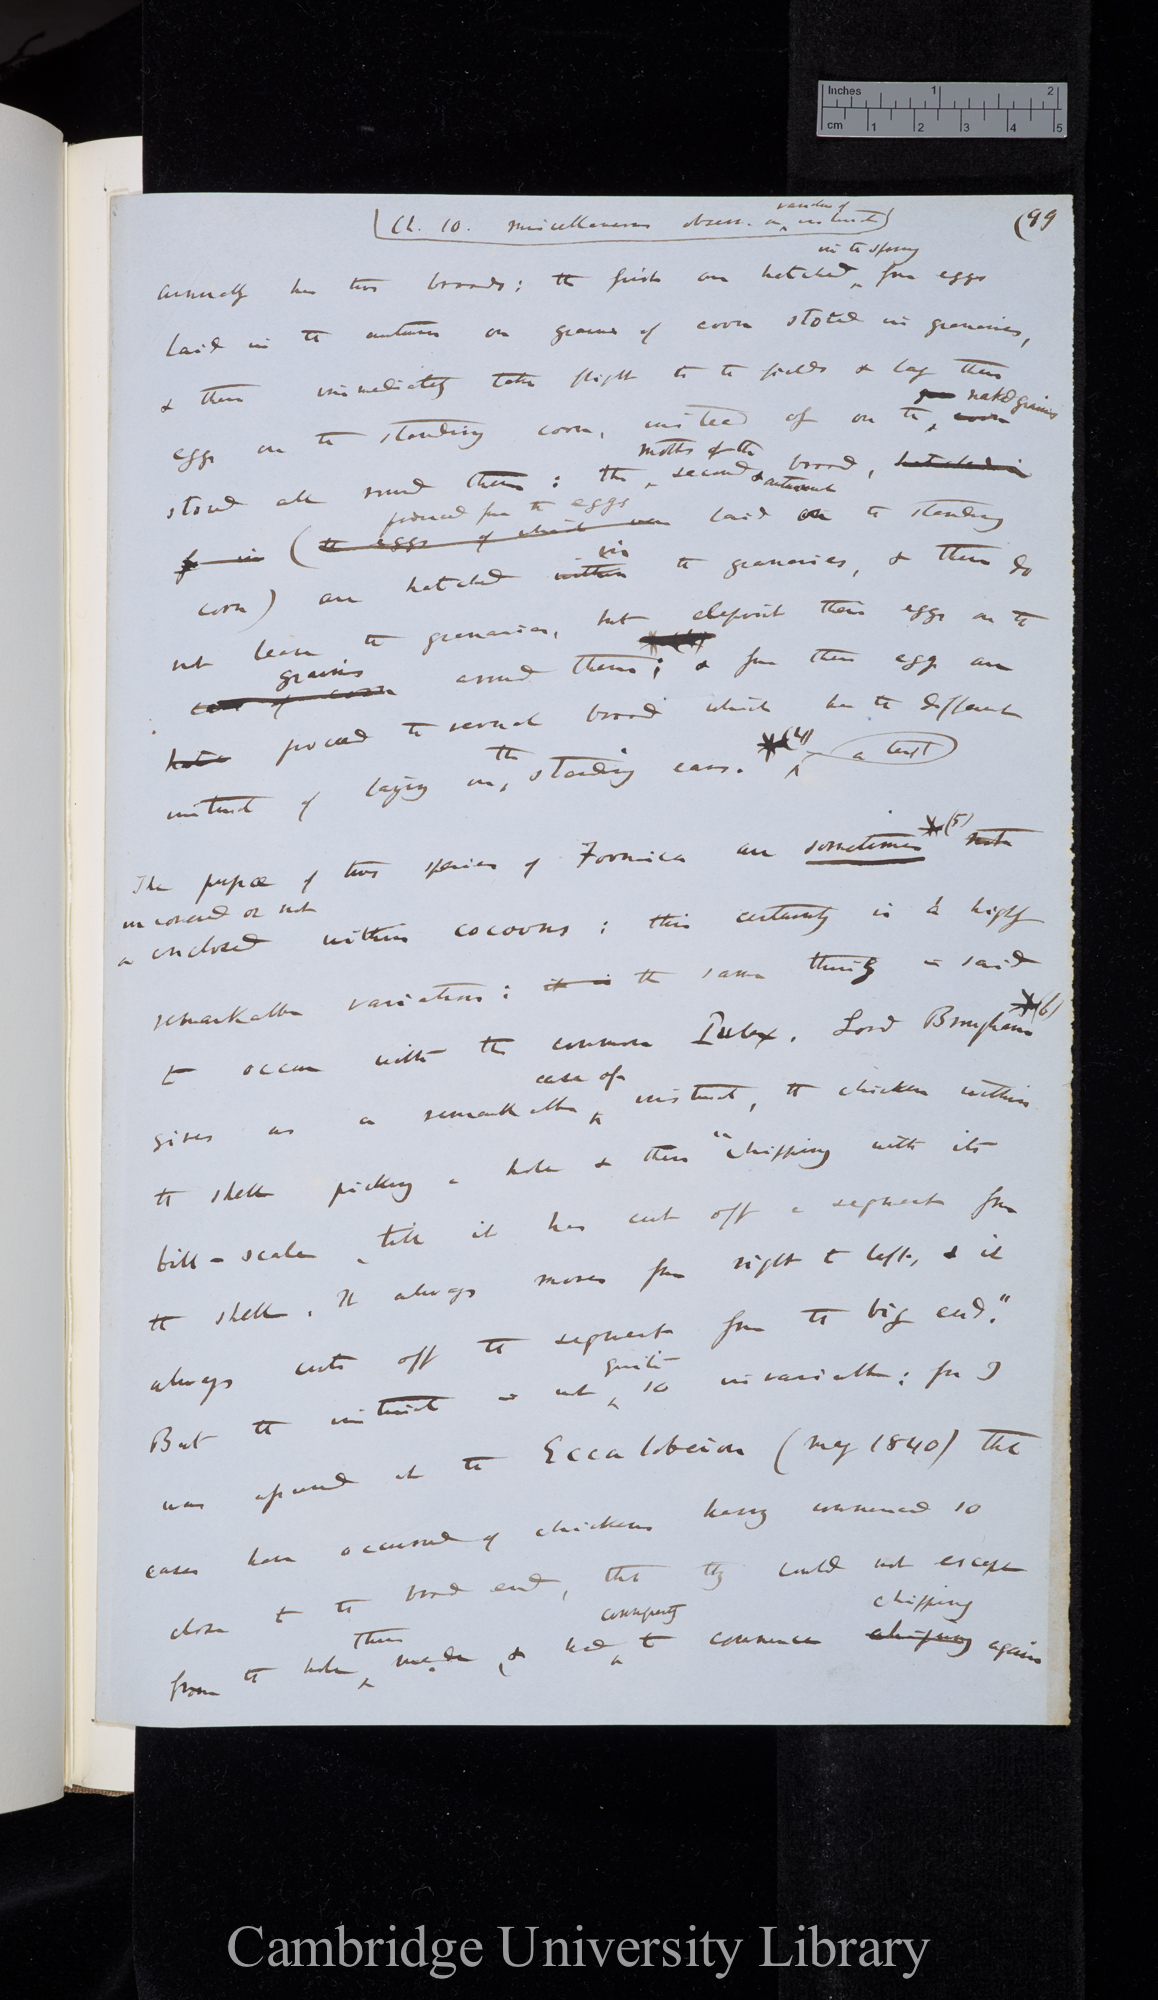 Inches 1 2
cm 1 2 3 4 5
(99
Ch. 10. miscellaneous observ. on variation of instincts
in the spring
annually has two broods; the first are hatched from eggs
laid in the autumn on grains of corn stored in granaries,
& then immediately take flight to the fields & lay their
naked grains
eggs on the standing corn, instead of on the corn
moths of the
stored all round them: the second & autumnal brood, hatched in
proceed from the eggs
(the eggs of which were laid on the standing
in
corn) are hatched within the granaries, & then do
not leave the granaries, but deposit their eggs on the
grains
ears of corn around them; & from these eggs are
proceed the vernal brood which has the different
instinct of laying on the standing ears. (4) a text
The pupæ of two species of Formica are sometimes (5) not
uncovered or not
enclosed within cocoons; this certainly is a highly
remarkable variation; it is the same thing is said
to occur with the common Pulex. Lord Brougham (6)
case of
gives as a remarkable instinct, the chicken within
the shell picking a hole & then "chipping with its
bill-scale till it has cut off a segment from
the shell. It always moves from right to left, & it
always cuts off the segment from the big end."
quite
But the instinct is not so invariable; for I
was assured at the Eccalobeion (May 1840) that
cases have occurred of chickens having commenced so
close to the broad end, that they could not escape
chipping
from the hole thus made, & had consequently to commence chipping again
Cambridge University Library